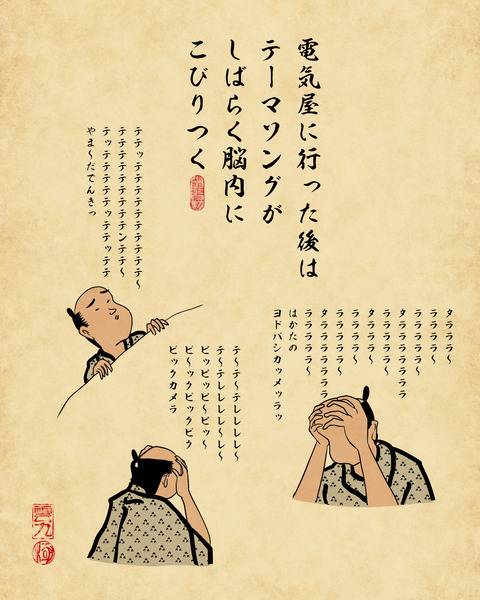 電気屋に行った後は
テーマソングが
しばらく脳内に
こびりつく
テテッテテテテテテテテテ〜
テテテテテテテテンテテ〜
テッテテテテテッテテッテテ
やま〜だてんきっ
タラララ〜
ララララ〜
ラララララ〜
タラララララララ
ララララララ〜
タラララ〜
ララララ〜
ラララララ〜
タラララララララ
ラララララ〜
はかたの
ヨドバシカッメッラッ
テ〜テ〜テレレレレ〜
テ〜テレレレレ〜レ〜
ビッビッビ〜ビッ〜
ビ〜ックビックビク
ビックカメラ